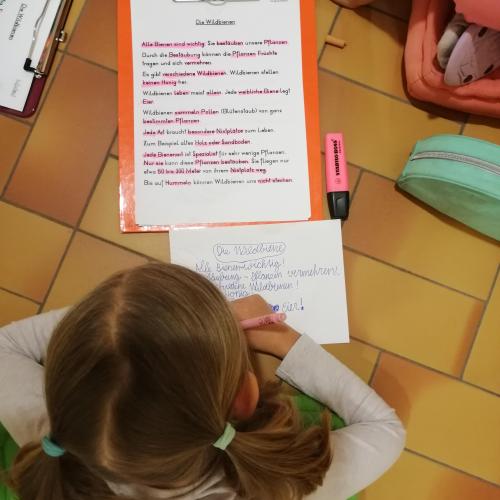 Die Wildbienen
Die Wildbienen
Alle Bienen sind wichtig. Sie bestäuben unsere Pflanzen.
Durch die Bestäubung können die Pflanzen Früchte
tragen und sich vermehren.
Es gibt verschiedene Wildbienen. Wildbienen stellen
keinen Honig her.
Wildbienen leben meist allein. Jede weibliche Biene legt
Eier.
Wildbienen sammeln Pollen (Blütenstaub) von ganz
bestimmten Pflanzen.
Jede Art braucht besondere Nistplätze zum Leben.
Zum Beispiel altes Holz oder Sandboden.
Jede Bienenart ist Spezialist für sehr wenige Pflanzen.
Nur sie kann diese Pflanzen bestäuben. Sie fliegen nur
etwa 50 bis 300 Meter von ihrem Nistplatz weg.
Bis auf Hummeln können Wildbienen uns nicht stechen.
STABILO BOSS
Die Wildbiene
Alle Bienen wichtig!
- Pflanzen vermehren
Wildbienen!
Eier!